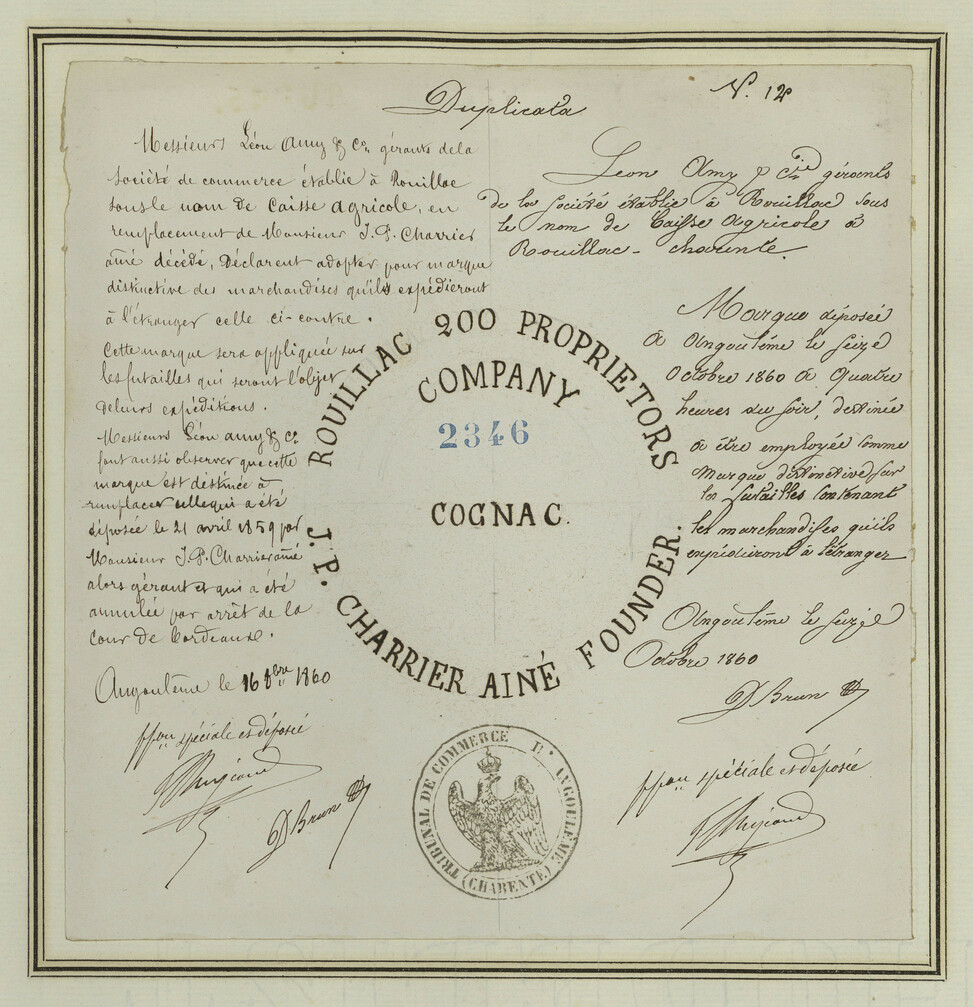 Duplicata
N. 12
Messieurs Léon Amy & Co. gérants de la
société de commerce établie à Rouillac
sous le nom de Caisse Agricole, en
remplacement de Monsieur J. P. Charrier
aîné décédé, Déclarent adopter pour marque
distinctive des marchandises qu'ils expédieront
à l'étranger celle ci-contre.
Cette marque sera appliquée sur
les futailles qui seront l'objet
de leurs expéditions.
Messieurs Léon Amy & Co
font aussi observer que cette
marque est destinée à
remplacer celle qui a été
déposée le 21 avril 1859 par
Monsieur J. P. Charrier aîné
alors gérant et qui a été
annulée par arrêt de la
Cour de Bordeaux.
Angoulême le 16 8bre 1860
ppon spéciale et déposée
D Brun
Leon Amy & Cie gérants
de la société établie à Rouillac sous
le nom de Caisse Agricole à
Rouillac - charente.
Marque déposée
à Angoulême le seize
Octobre 1860 à Quatre
heures du soir, destinée
à être employée comme
Marque distinctive sur
les futailles contenant
les marchandises qu'ils
expédieront à l'étranger
Angoulême le seize
Octobre 1860
D Brun
ppon spéciale et déposée
ROUILLAC 200 PROPRIETORS
COMPANY
2346
COGNAC.
J. P. CHARRIER AINÉ FOUNDER.
TRIBUNAL DE COMMERCE D'ANGOULÊME
(CHARENTE)